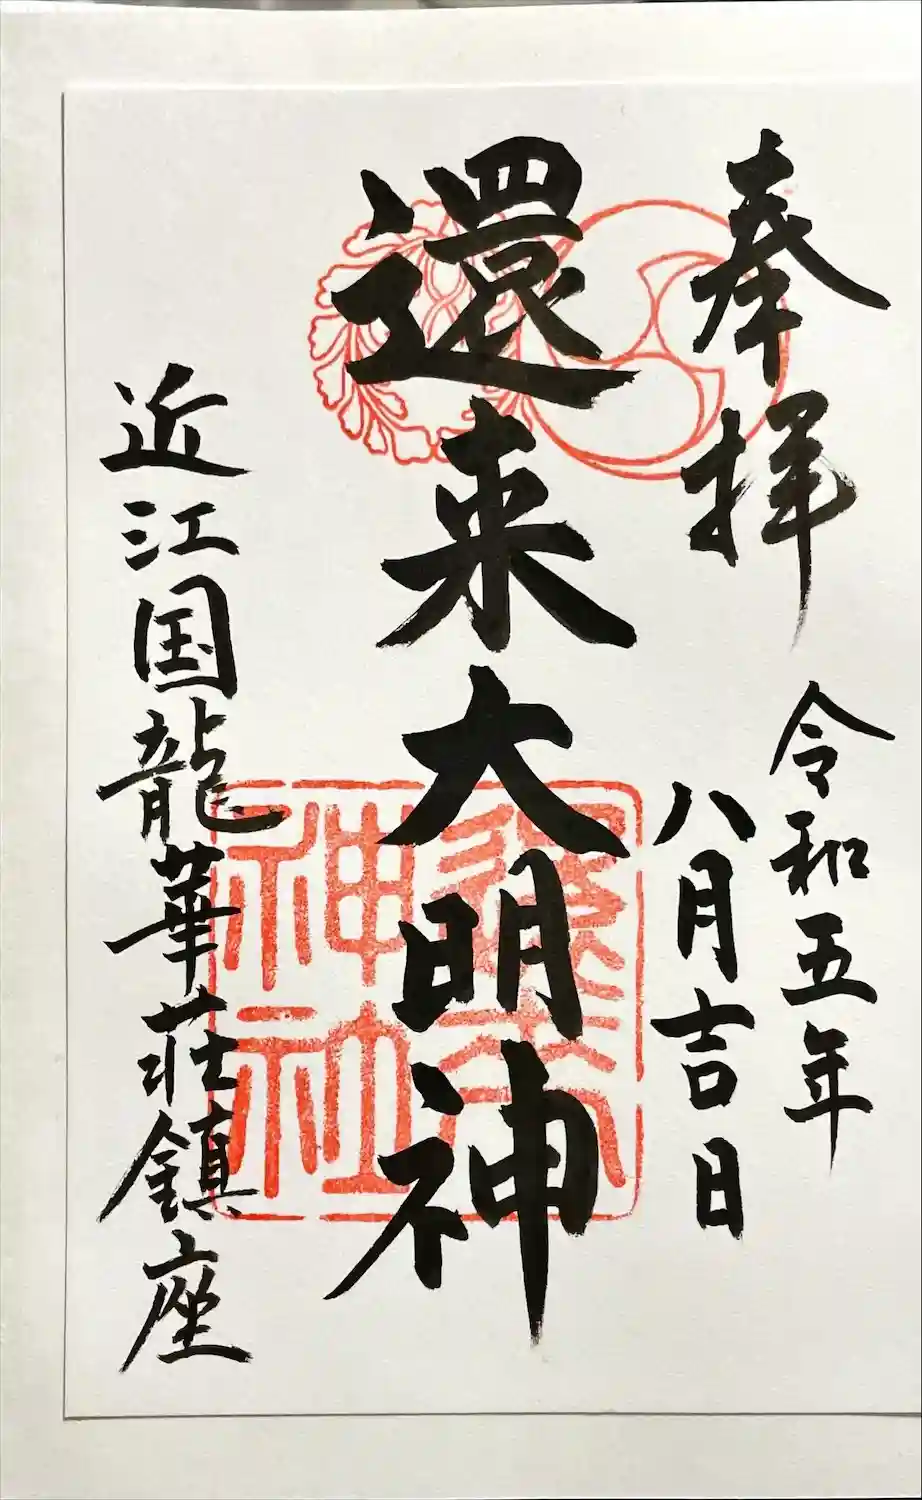 奉拝
令和五年
八月吉日
還来大明神
還来
神社
近江国龍華荘鎮座